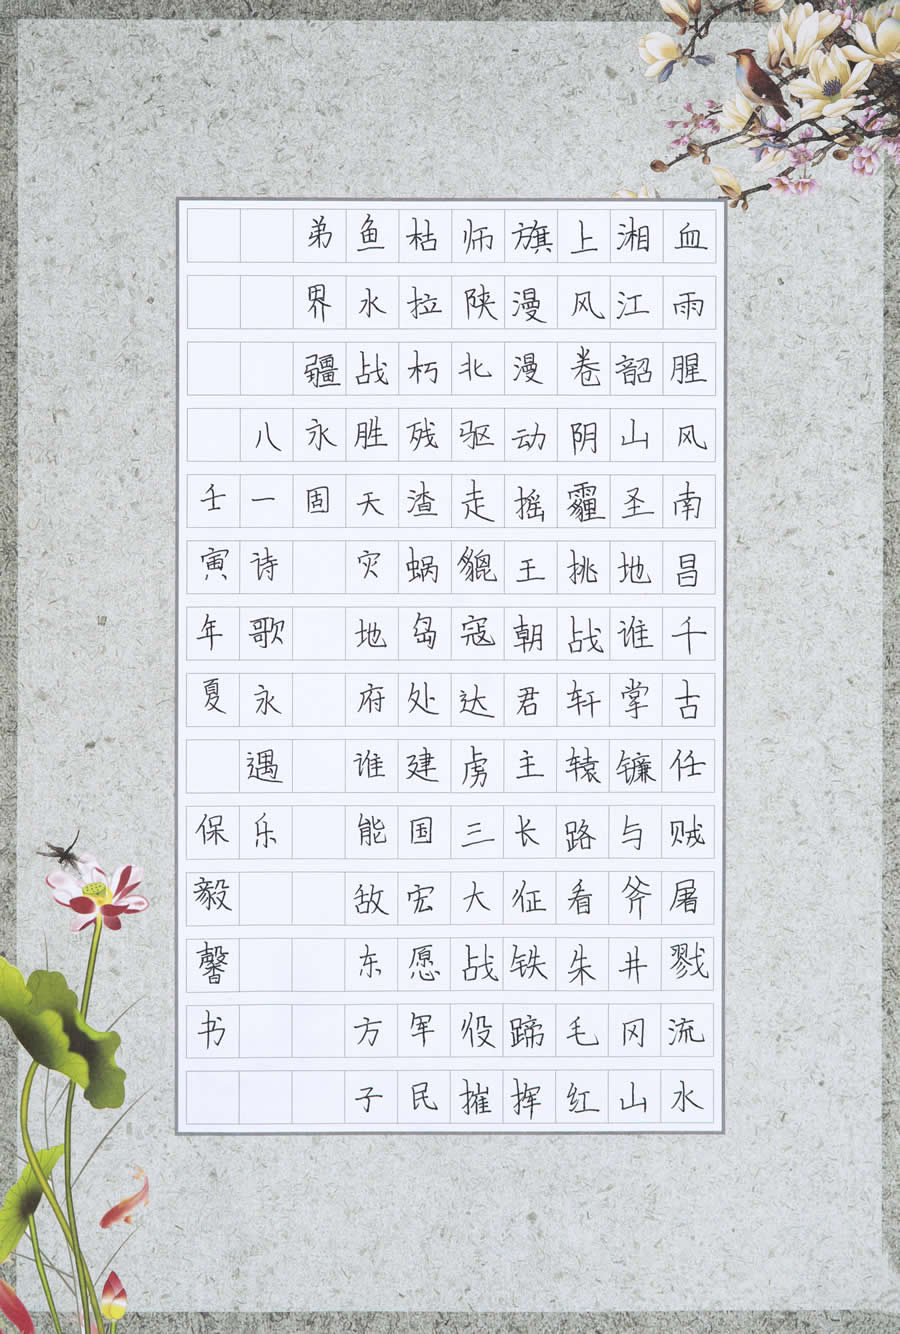 血雨腥风南昌千古任贼屠戮流水
湘江韶山圣地谁掌镰与斧井冈山
上风卷阴霾挑战轩辕路看朱毛红
旗漫漫动摇王朝君主长征铁蹄挥
师陕北驱走貔寇达虏三大战役摧
枯拉朽残渣蜗岛处建国宏愿军民
鱼水战胜天灾地府谁能敌东方子
弟界疆永固
八一诗歌永遇乐
壬寅年夏 保毅馨书